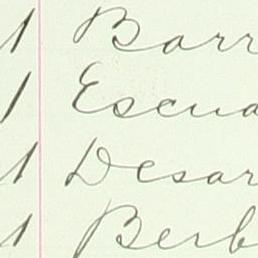 1 Barr
1 Escua
1 Desar
1 Berb